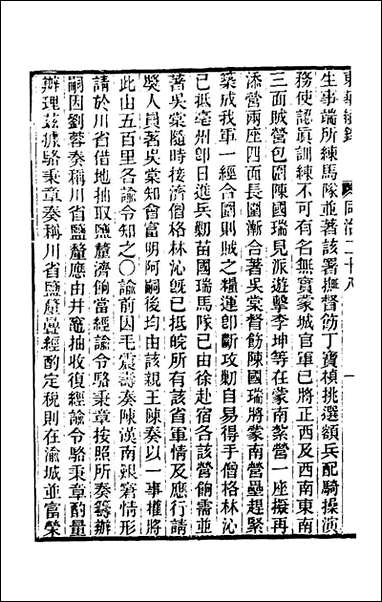 東華續錄 同治二十八 一
生事端所練馬隊並著該署撫督飭丁寶楨挑選額兵配騎操演
務使認眞訓練不可有名無實蒙城官軍已將正西及西南東南
三面賊營包圍陳國瑞見派遊擊李坤等在蒙南紮營一座擬再
添營兩座四面長圍漸合著吳棠督飭陳國瑞將蒙南營壘趕緊
築成我軍一經合圍則賊之糧運卽斷攻勦自易得手僧格林沁
已抵亳州卽日進兵勦苗國瑞馬隊已由徐赴宿各該營餉需並
著吳棠隨時接濟僧格林沁旣已抵皖所有該省軍情及應行請
獎人員著吳棠知會富明阿嗣後均由該親王陳奏以一事權將
此由五百里各諭令知之〇諭前因毛震壽奏陳漢南艱窘情形
請於川省借地抽取鹽釐濟餉當經諭令駱秉章按照所奏籌辦
嗣因劉蓉奏稱川省鹽釐應由井竈抽收復經諭令駱秉章酌量
辦理茲據駱秉章奏稱川省鹽釐疊經酌定稅則在渝城並富榮